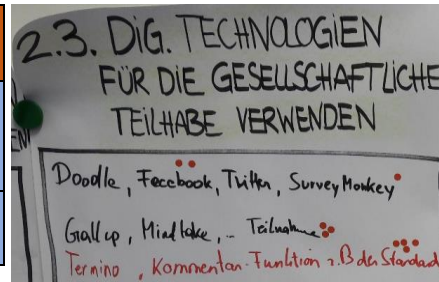 2.3. DiG. TECHNOLOGIEN
FÜR DIE GESELLSCHAFTLICHE
TEILHABE VERWENDEN
Doodle, Facebook, Twitter, SurveyMonkey
Gallup, Mindtake, .. Teilnahme
Termino, Kommentar-Funktion z.B der Standard